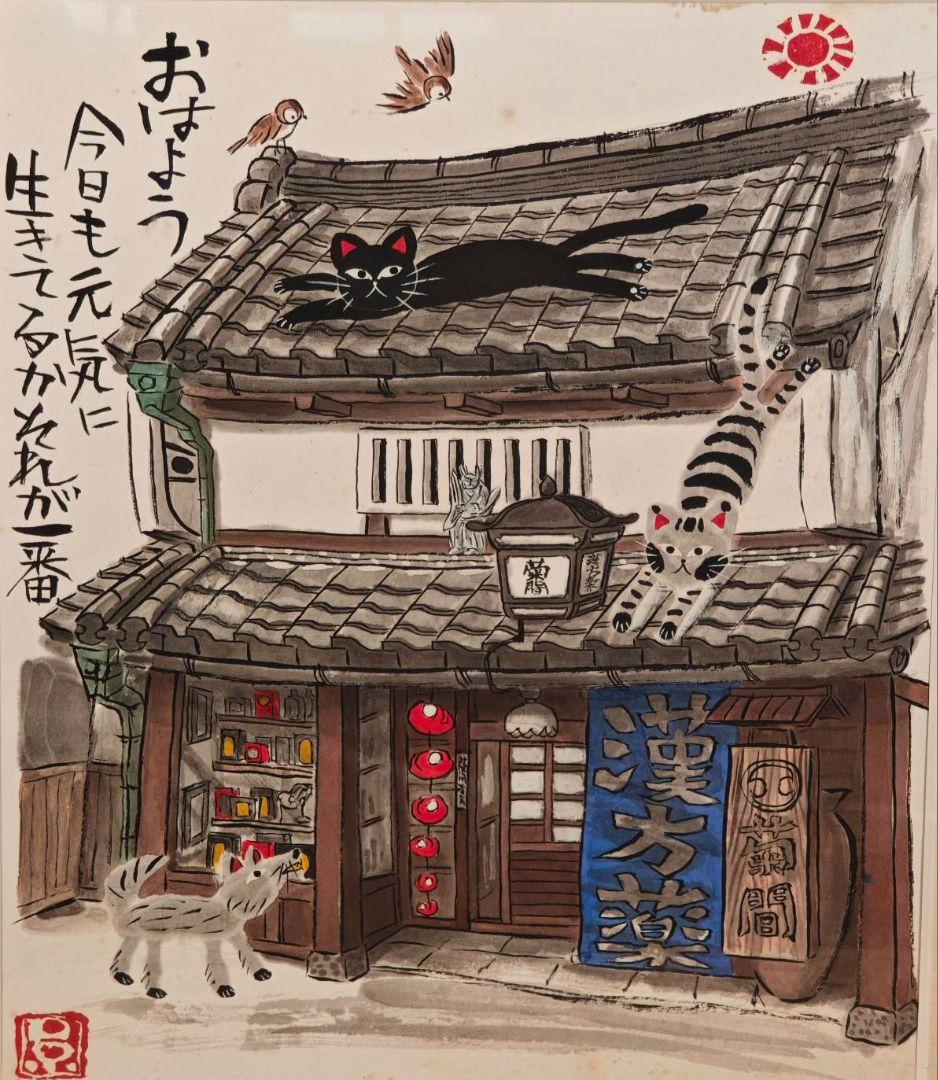 おはよう
今日も元気に
生きてるかそれが一番
漢方薬
蘭
漢方薬